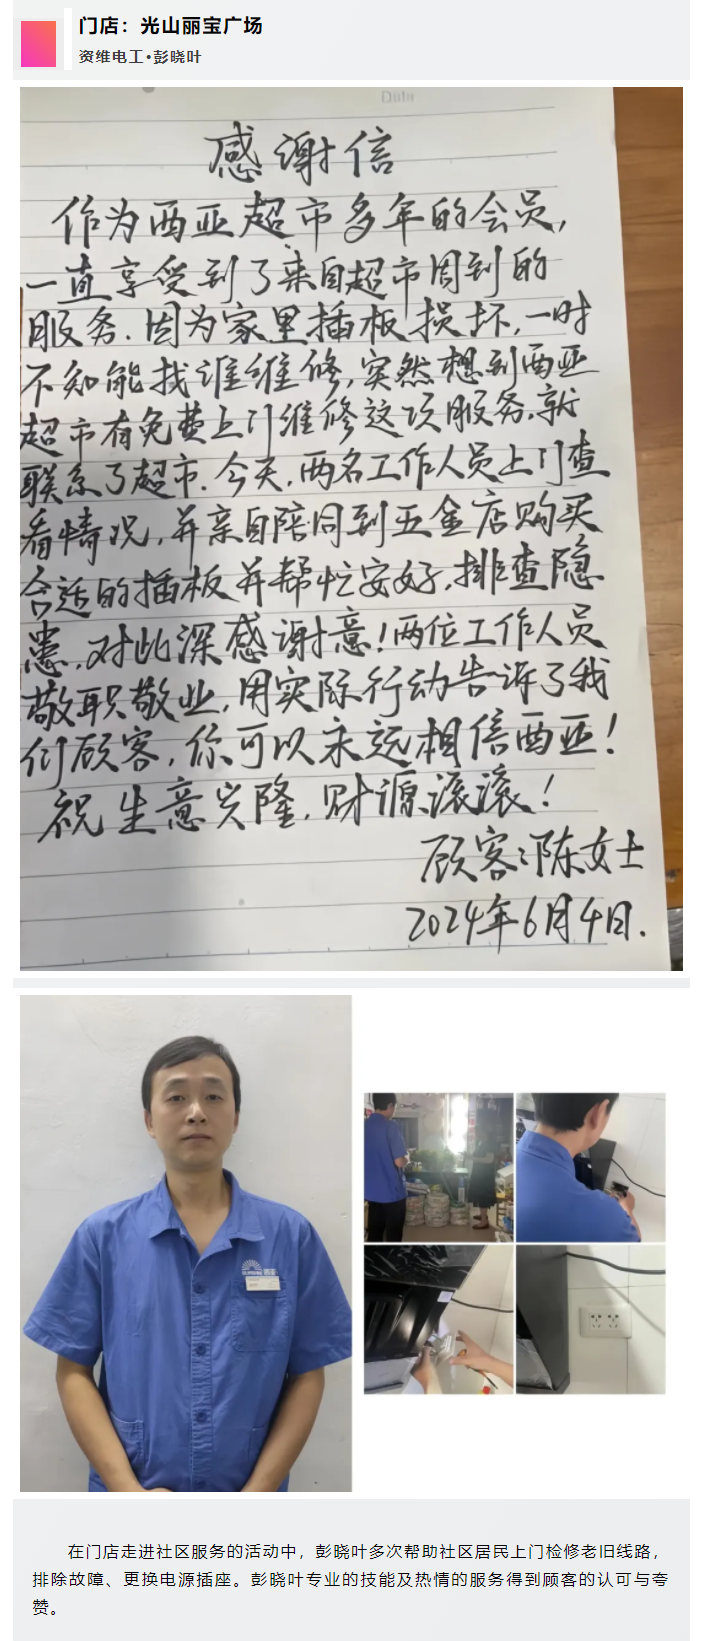 门店：光山丽宝广场
资维电工•彭晓叶
感谢信
作为西亚超市多年的会员，
一直享受到了来自超市周到的
服务.因为家里插板损坏，一时
不知能找谁维修，突然想到西亚
超市有免费上门维修这项服务，就
联系了超市.今天，两名工作人员上门查
看情况，并亲自陪同到五金店购买
合适的插板并帮忙安好，排查隐
患，对此深感谢意！两位工作人员
敬职敬业，用实际行动告诉了我
们顾客，你可以永远相信西亚！
祝生意兴隆，财源滚滚！
顾客：陈女士
2024年6月4日.
在门店走进社区服务的活动中，彭晓叶多次帮助社区居民上门检修老旧线路，
排除故障、更换电源插座。彭晓叶专业的技能及热情的服务得到顾客的认可与夸
赞。